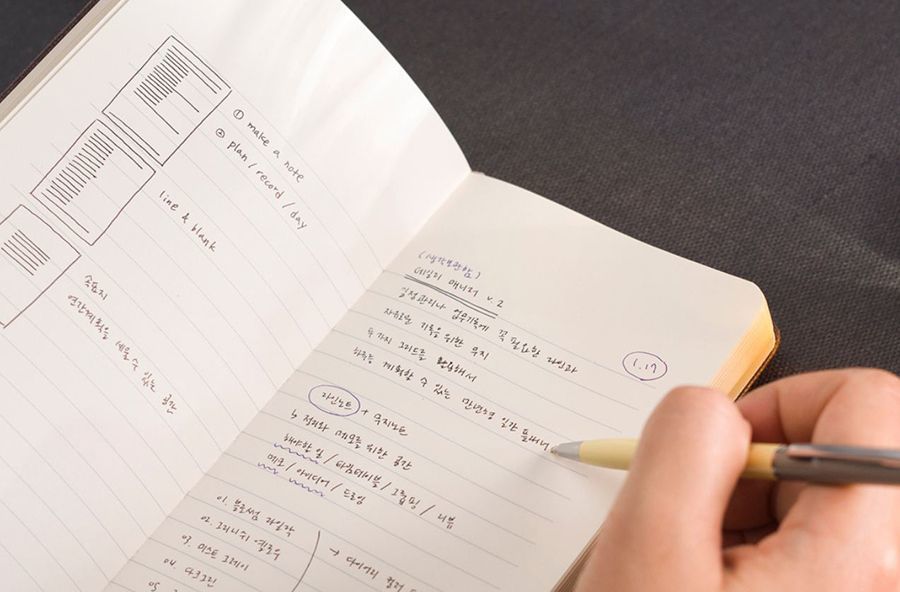 ① make a note
② plan / record / day
line & blank
속표지
연간계획을 세울 수 있는 공간
(생각보관함)
데일리 매니저 v.2
일정관리나 업무기록에 꼭 필요한 라인과
자유로운 기록을 위한 무지
두 가지 그리드를 활용해서
하루를 계획할 수 있는 만년형 일간 플래너
1.17
라인노트 + 무지노트
↳ 정리와 메모를 위한 공간
해야할 일 / 타임테이블 / 그룹핑 / 리뷰
메모 / 아이디어 / 드로잉
01. 블로썸 라일락
02. 그리니쉬 옐로우
03. 미스트 그레이
04. 다크그린
05
→ 다이어리 컬러